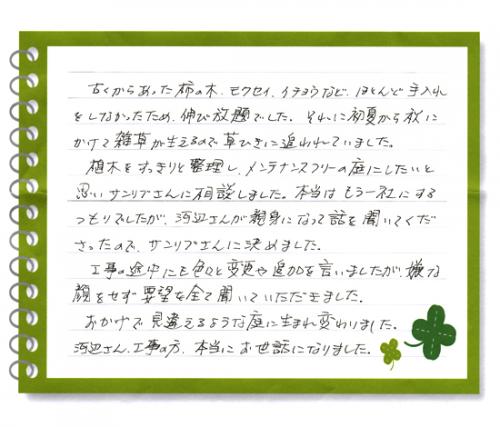 古くからあった柿の木、モクセイ、イチョウなど、ほとんど手入れ
をしなかったため、伸び放題でした。それに初夏から秋に
かけて雑草が生えるので草ひきに追われていました。
植木をすっきりと整理し、メンテナンスフリーの庭にしたいと
思いサンリブさんに相談しました。本当はもう一社にする
つもりでしたが、河辺さんが親身になって話を聞いてくだ
さったので、サンリブさんに決めました。
工事の途中にも色々と変更や追加を言いましたが、嫌な
顔をせず要望を全て聞いていただきました。
おかげで見違えるような庭に生まれ変わりました。
河辺さん、工事の方、本当にお世話になりました。